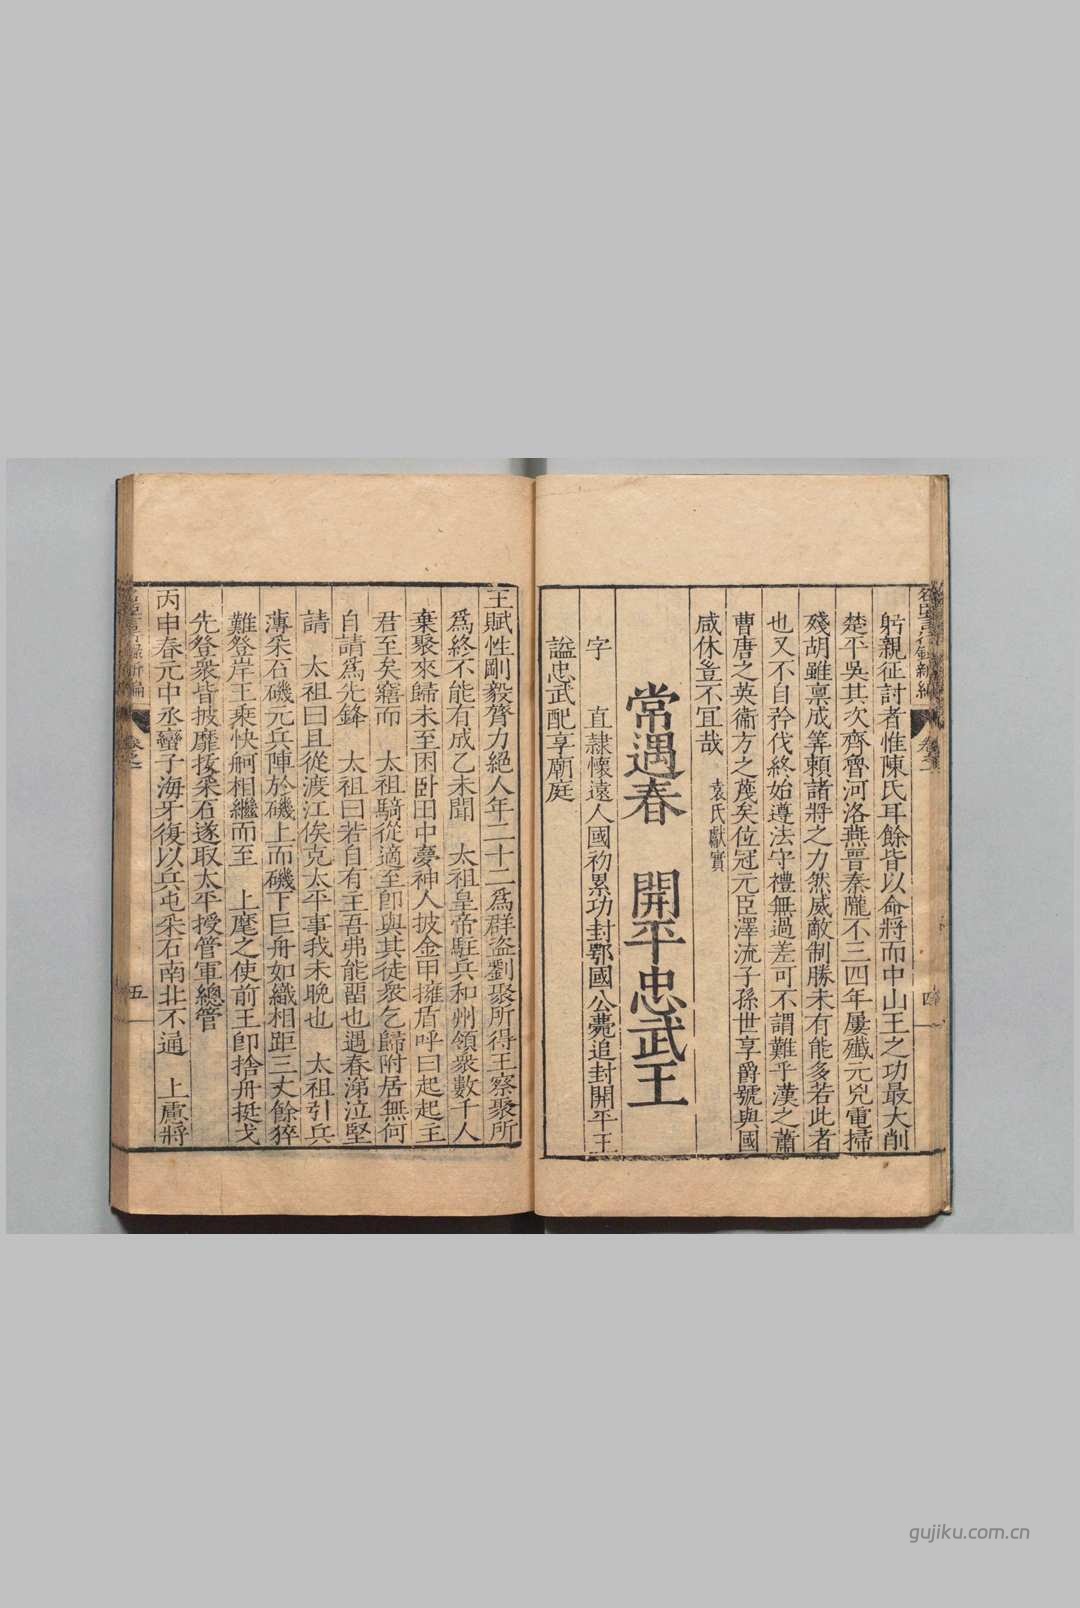 躬親征討者惟陳氏耳餘皆以命將而中山王之功最大削
楚平吳其次齊魯河洛燕晉秦隴不三四年屢殲元兇電掃
殘胡雖稟成筭賴諸將之力然威敵制勝未有能多若此者
也又不自矜伐終始遵法守禮無過差可不謂難乎漢之蕭
曹唐之英衞方之蔑矣位冠元臣澤流子孫世享爵號與國
咸休豈不宜哉 袁氏獻實
常遇春 開平忠武王
字 直隸懷遠人國初累功封鄂國公薨追封開平王
謚忠武配享廟庭
王賦性剛毅膂力絕人年二十二爲群盜劉聚所得王察聚所
爲終不能有成乙未聞 太祖皇帝駐兵和州領衆數千人
棄聚來歸未至困卧田中夢神人披金甲擁盾呼曰起起王
君至矣寤而 太祖騎從適至卽與其徒衆乞歸附居無何
自請爲先鋒 太祖曰若自有王吾弗能畱也遇春涕泣堅
請 太祖曰且從渡江俟克太平事我未晚也 太祖引兵
薄采石磯元兵陣於磯上而磯下巨舟如織相距三丈餘猝
難登岸王乘快舸相繼而至 上麾之使前王卽捨舟挺戈
先登衆皆披靡拔采石遂取太平授管軍總管
丙申春元中丞蠻子海牙復以兵屯采石南北不通 上慮將
名臣言行錄新編
卷之一
四
五
gujiku.com.cn